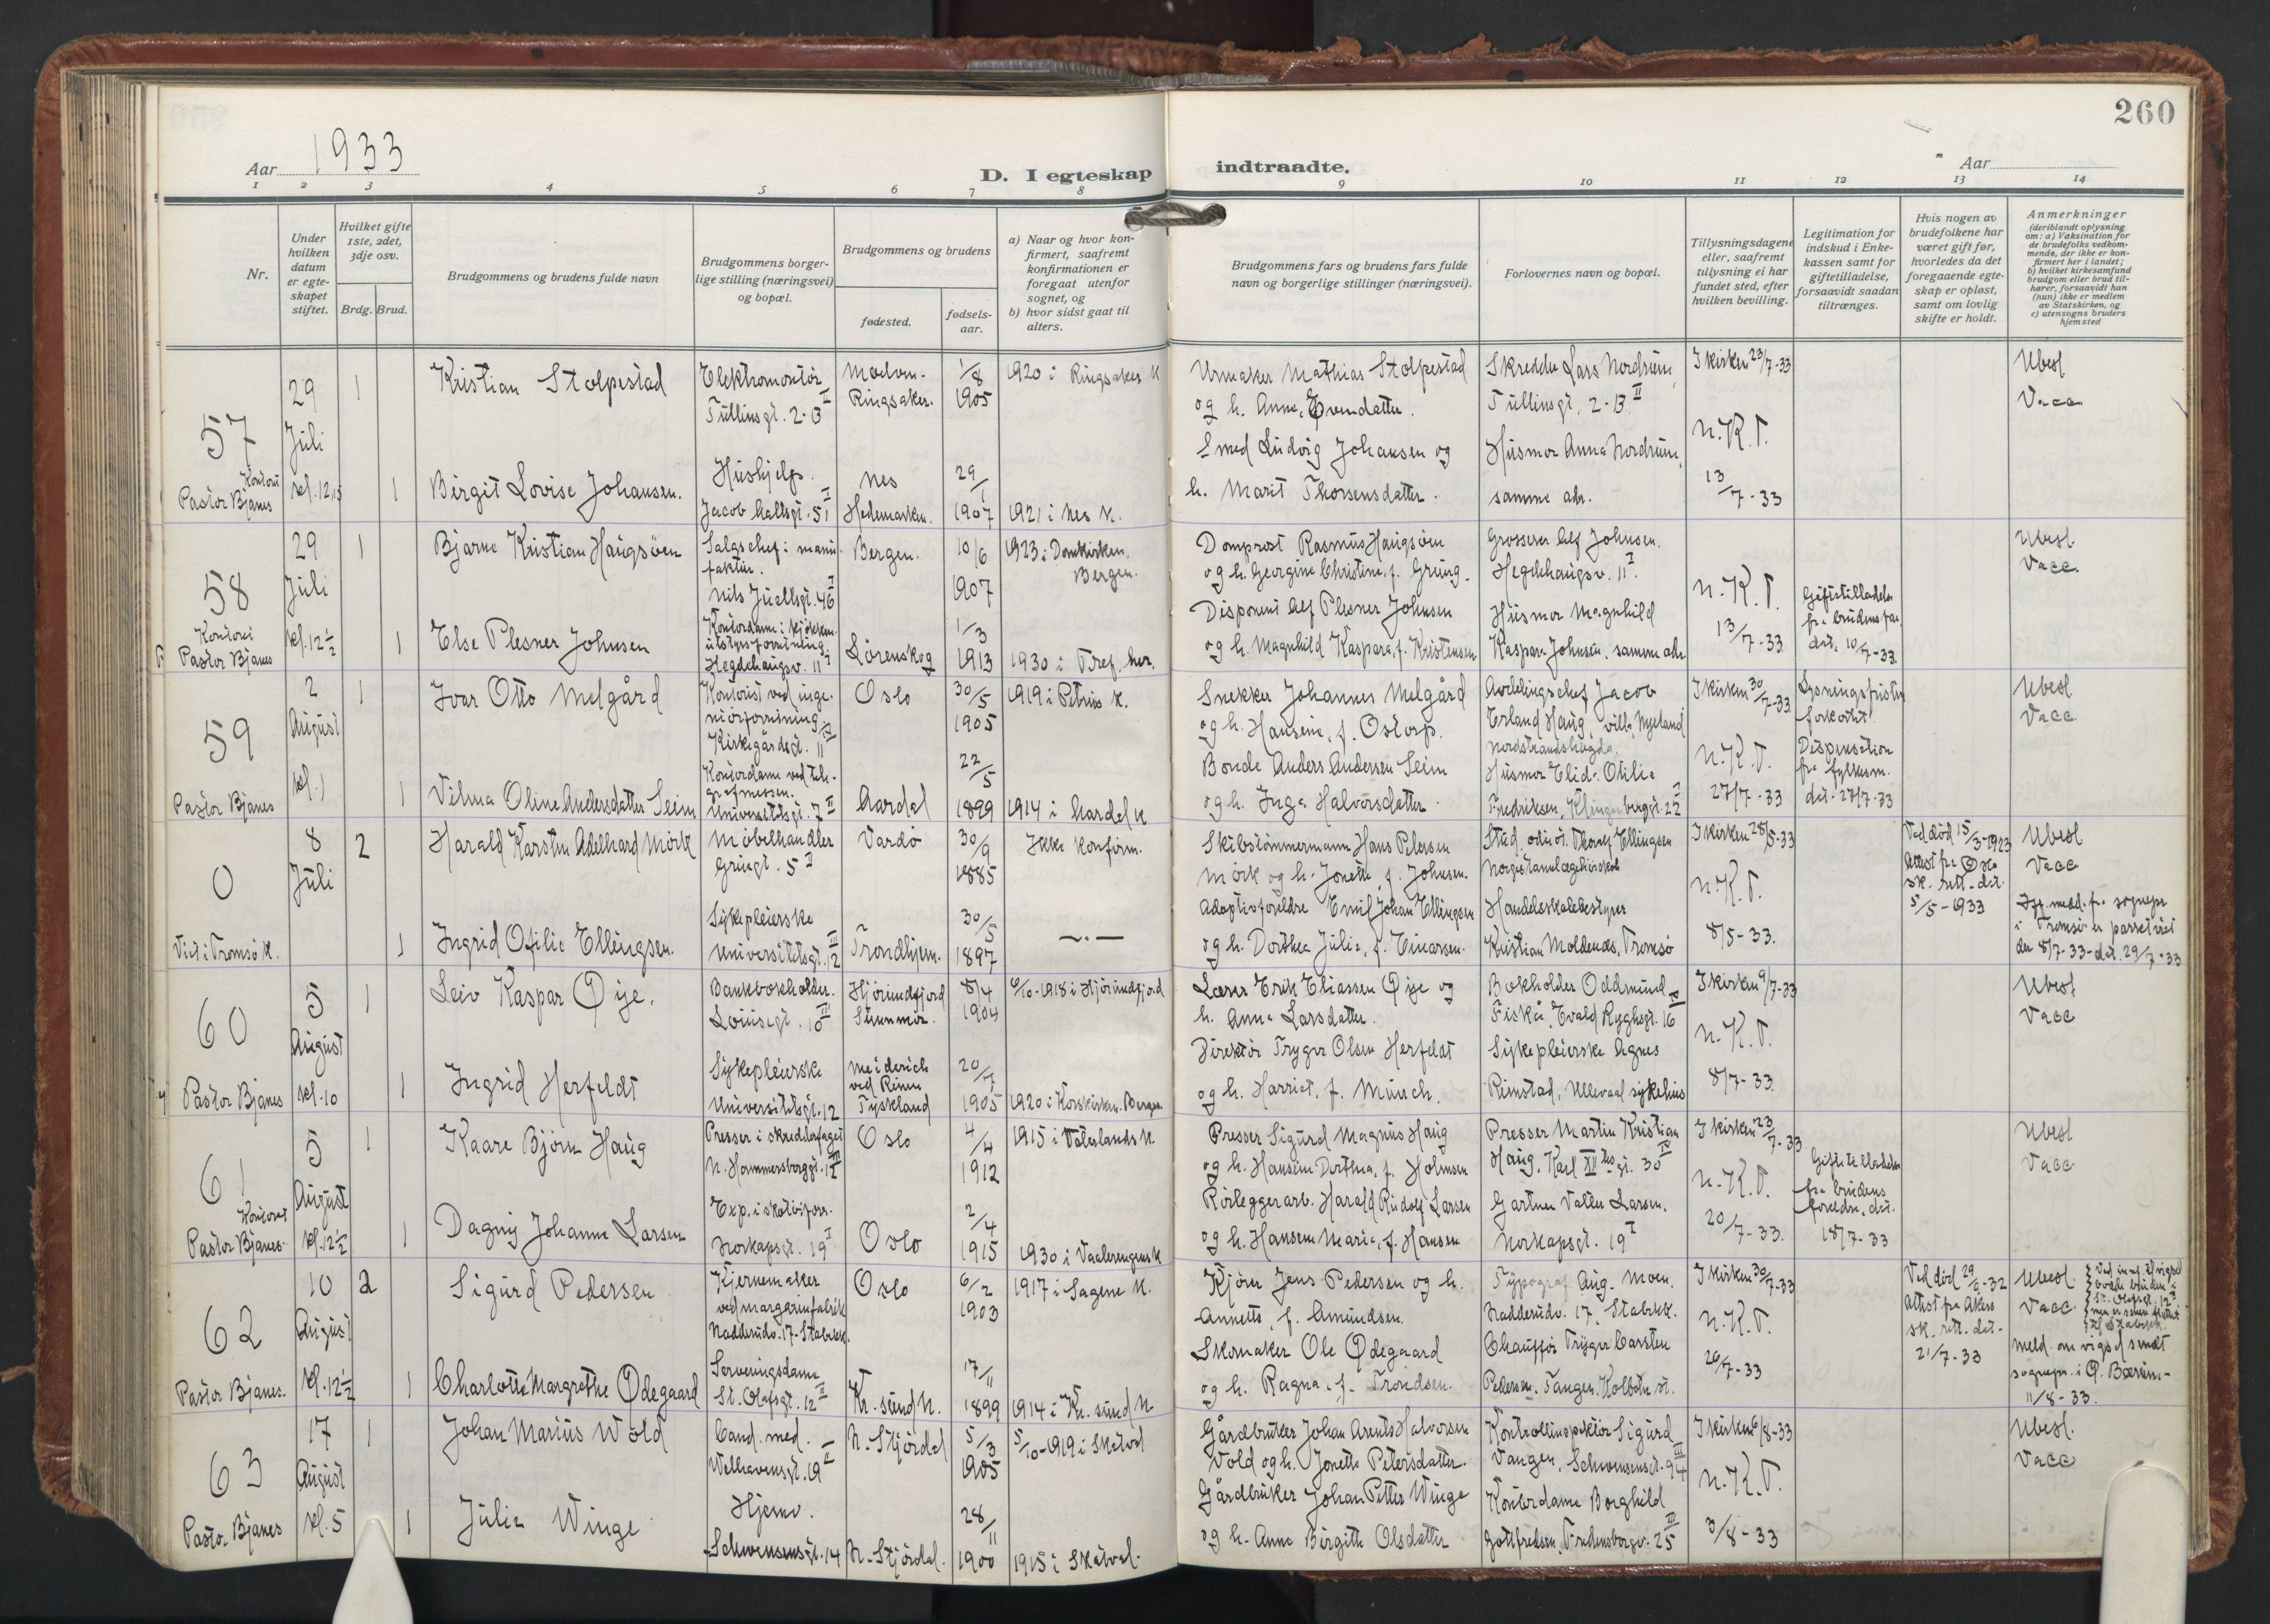 260
Aar 1933
D. I egteskap indtraadte.
Aar
1 2 3 4 5 6 7 8 9 10 11 12 13 14
Nr.
Under hvilken datum er egteskapet stiftet.
Hvilket gifte 1ste, 2det, 3dje osv.
Brdg. Brud.
Brudgommens og brudens fulde navn
Brudgommens borgerlige stilling (næringsvei) og bopæl.
Brudgommens og brudens
fødested.
fødselsaar.
a) Naar og hvor konfirmert, saafremt konfirmationen er foregaat utenfor sognet, og
b) hvor sidst gaat til alters.
Brudgommens fars og brudens fars fulde navn og borgerlige stillinger (næringsvei).
Forlovernes navn og bopæl.
Tillysningsdagene eller, saafremt tillysning ei har fundet sted, efter hvilken bevilling.
Legitimation for indskud i Enkekassen samt for giftetilladelse, forsaavidt saadan tiltrænges.
Hvis nogen av brudefolkene har været gift før, hvorledes da det foregaaende egteskap er opløst, samt om lovlig skifte er holdt.
Anmerkninger (deriblandt oplysning om: a) Vaksination for de brudefolks vedkommende, der ikke er konfirmert her i landet; b) hvilket kirkesamfund brudgom eller brud tilhører, forsaavidt han (hun) ikke er medlem av Statskirken, og c) utensogns bruders hjemsted
57
29 Juli kl. 12,15
Kontoret
Pastor Bjanes
1
Kristian Stolpestad
Elektromontør
Tullinsgt. 2-B II
Ringsaker.
1/8 1905
1920 i Ringsaker K
Urmaker Mathias Stolpestad
og h. Anne Evendatter.
Skredder Lars Nordrum,
Tullinsgt. 2-B II
I kirken 23/7-33
Ubesl.
Vacc
1
Birgit Lovise Johansen.
Hushjelp.
Jacob Hallsgt. 5 I
Nes
Hedemarken.
29/1 1907
1921 i Nes K.
Smed Ludvig Johansen og
h. Marit Thorsensdatter.
Husmor Anna Nordrum,
samme adr.
N.K.T.
13/7-33
58
29 Juli kl. 12 1/2
Kontoret
Pastor Bjanes
1
Bjarne Kristian Haugsøen
Salgschef i manufaktur.
Nils Juellsgt. 46 I
Bergen.
10/6 1907
1923 i Domkirken,
Bergen.
Domprost Rasmus Haugsøen
og h. Georgine Christine, f. Grung.
Grosserer Alf Johnsen.
Hegdehaugsv. 11 I.
Ubesl.
Vacc.
1
Else Plesner Johnsen
Kontordame i kjøkkenutstyrsforretning.
Hegdehaugsv. 11 I
Lørenskog
1/3 1913
1930 i Tref. her.
Disponent Alf Plesner Johnsen
og h. Magnhild Kaspara, f. Kristensen
Husmor Magnhild
Kaspara Johnsen, samme adr.
N.K.T.
13/7-33
Giftetilladelse
fra brudens far,
dat. 10/7-33.
59
2 August kl. 1
Pastor Bjanes
1
Ivar Otto Melgård
Kontorist ved ingeniørforretning,
Kirkegårdsgt. 11
Oslo
30/5 1905
1919 i Petrus K.
Snekker Johannes Melgård
og h. Hansine, f. Ostorp.
Avdelingschef Jacob
Erland Haug, villa Myeland
Nordstrandshøgda.
I kirken 30/7-33.
Lysningsfristen
forkortet.
Ubesl
Vacc.
1
Vilma Oline Andersdatter Seim
Kontordame ved telegrafmessen.
Universitetsgt. 7 II
Aardal
22/5 1899
1914 i Aardal K
Bonde Anders Andersen Seim
og h. Inga Halvorsdatter.
Husmor Elida Otilie
Fredriksen, Klingenberggt. 22
N.K.T.
27/7-33
Dispensation
fra fylkesm.
dat. 27/7-33
0
8 Juli
Viet i Tromsø K.
2
Harald Karsten Adelhard Mörk
Møbelhandler
Vardø
30/9 1885
Ikke konfirm.
Skibstømmermann Hans Petersen
Mørk og h. Jonette, f. Johnsen.
Stud. odont. Thorleif Ellingsen
Norges tannlægehøiskole
I kirken 28/5-33
Ved død 15/3-1923
Attest fra Oslo
sk. rett. dat.
5/5-1933
Ubesl
Vacc
1
Ingrid Otilie Ellingsen.
Sykepleierske
Universitetsgt. 12 III
Trondhjem.
30/5 1897
—"—
Adoptivforeldre Emil Johan Ellingsen
og h. Dorthea Julie, f. Einarsen.
Handelsskolebestyrer
Kristian Moldenæs, Tromsø
N.K.T.
8/5-33.
Iflg. medd. fra sognepr
i Tromsø er parret viet
der 8/7-33 - dat. 29/7-33
60
5 August kl. 10
Pastor Bjanes
1
Leiv Kaspar Øije.
Bankbokholder.
Louisegt. 10 III
Hjørundfjord
Sunnmør.
8/4 1904
6/10-1918 i Hjørundfjord
Lærer Erik Eliassen Øije og
h. Anna Larsdatter.
Bokholder Oddmund
Fiskå, Evald Ryghsgt. 16
I kirken 9/7-33
Ubesl.
Vacc
1
Ingrid Herfeldt
Sykepleierske
Universitetsgt. 12
Meiderich
ved Rhinen
Tyskland
20/7 1905
1920 i Korskirken. Bergen
Direktør Trygve Olsen Herfeldt
og h. Harriet, f. Münch.
Sykepleierske Agnes
Reinstad, Ullevaal sykehus
N.K.T.
8/7-33.
61
5 August kl. 12 1/2
Kontoret
Pastor Bjanes.
1
Kaare Bjørn Haug
Presser i skredderfaget
N. Hammersborggt. 12 III
Oslo
4/4 1912
1915 i Vaterlands K
Presser Sigurd Magnus Haug
og h. Hansine Dorthea, f. Holmsen
Presser Martin Kristian
Haug, Karl XII tes gt. 30 IV
I kirken 23/7-33
Ubesl
Vacc.
1
Dagny Johanne Larsen
Exp. i skotøiforr.
Norkapsgt. 19 I
Oslo
2/4 1915
1930 i Vaalerengens K
Rørleggerarb. Harald Rudolf Larsen
og h. Hansine Marie, f. Hansen
Gartner Valter Larsen.
Norkapsgt. 19 I
N.K.T.
20/7-33.
Giftetilladelse
fra brudens
foreldre, dat.
18/7-33
62
10 August kl. 12 1/2
Pastor Bjanes.
2
Sigurd Pedersen
Kjernemaker
ved margarinfabrik
Nadderudv. 17 - Stabekk.
Oslo
6/2 1903
1917 i Sagene K.
Kjører Jens Pedersen og h.
Annette, f. Amundsen.
Typograf Aug. Moen.
Nadderudv. 17, Stabekk.
I kirken 30/7-33
Ved død
Attest fra Akers
sk. rett. dat.
21/7-33
Ubesl.
Vacc
Ved innf. til vigsel
bodde bruden i
St. Olafsgt. 12
men er senere flyttet
til Stabekk
1
Charlotte Margrethe Ødegaard
Serveringsdame
St. Olafsgt. 12 II
Kr. sund N.
17/11 1899
1914 i Kr. sund N
Skomaker Ole Ødegaard
og h. Ragna, f. Trondsen.
Chauffør Trygve Carsten
Pedersen, Tangen, Kolbotn st.
N.K.T.
26/7-33
Meld. om vigsel sendt
sognepr. i Ø. Bærum -
11/8-33.
63
17 August kl. 5
Pastor Bjanes
1
Johan Marius Wold
Cand. med.
Welhavensgt. 19 II
N. Stjørdal
5/3 1905
5/10-1919 i Skatval
Gårdbruker Johan Arents Halvorsen
Vold og h. Jonette Petersdatter.
Kontrollinspektør Sigurd
Vangen, Schwensensgt. 94 III
I kirken 6/8-33
Ubesl.
Vacc
1
Julie Winge
Hjemv.
Schwensensgt. 14
N. Stjørdal.
28/11 1900
1915 i Skatval.
Gårdbruker Johan Petter Winge
og h. Anne Birgitte Olsdatter
Kontordame Borghild
Gottfredsen, Fredensborgv. 25 III
N.K.T.
3/8-33